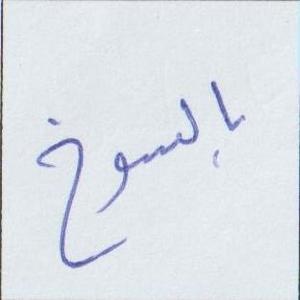 بالسوخ